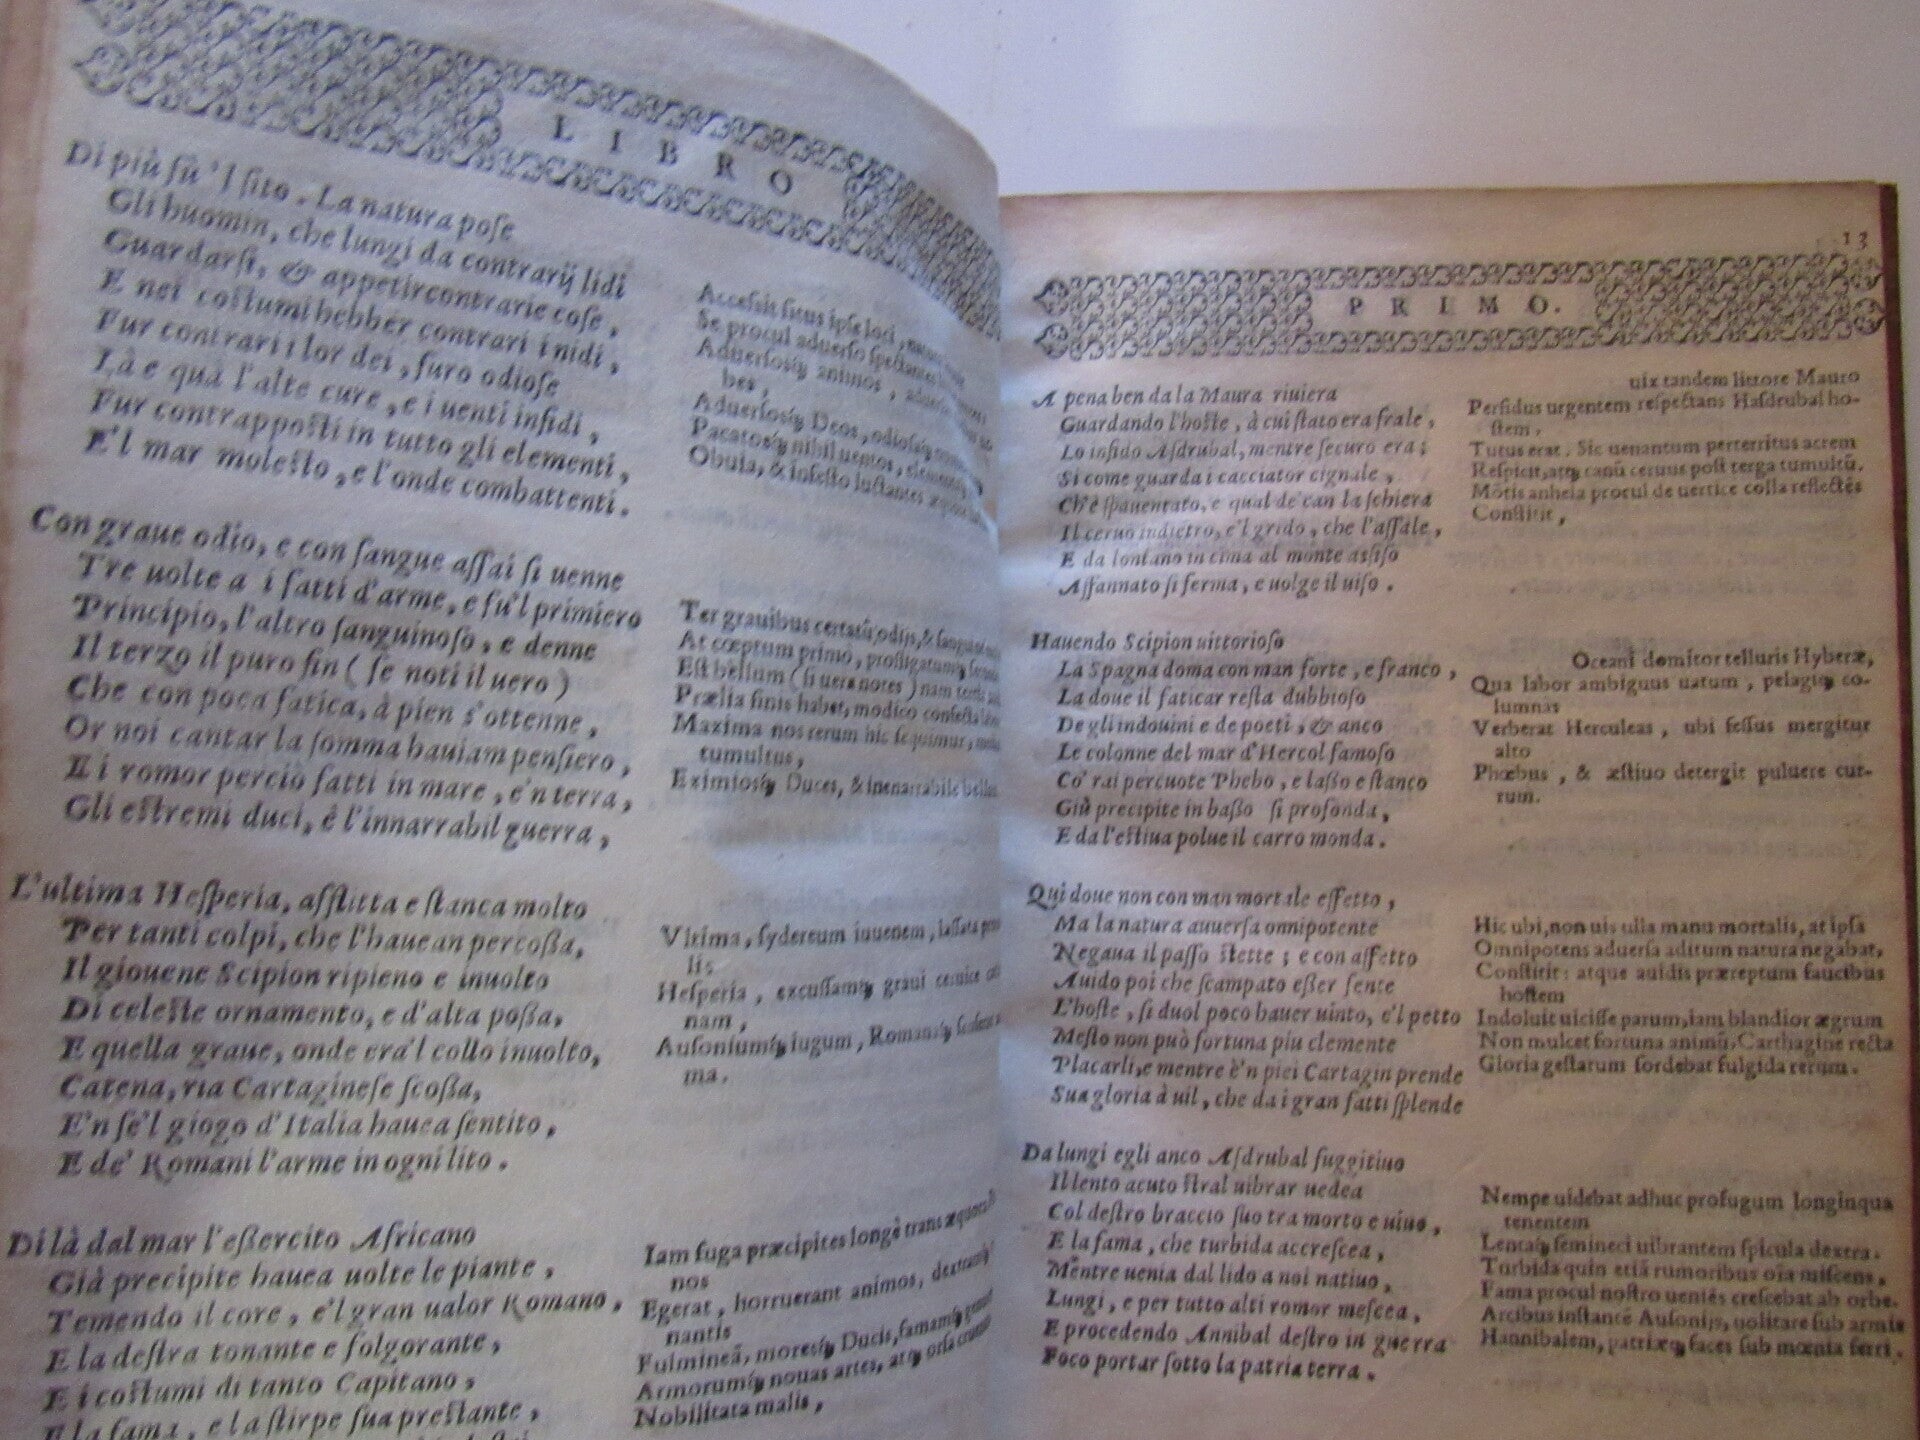 LIBRO
Di più sù'l sito. La natura pose
Gli huomin, che lungi da contrarij lidi
Guardarsi, & appetir contrarie cose,
E nei costumi hebber contrari i nidi,
Fur contrari i lor dei, furo odiose
Là e quà l'alte cure, e i uenti infidi,
Fur contrapposti in tutto gli elementi,
E'l mar molesto, e l'onde combattenti.
Con graue odio, e con sangue assai si uenne
Tre uolte a i fatti d'arme, e fu'l primiero
Principio, l'altro sanguinoso, e denne
Il terzo il puro fin (se noti il uero)
Che con poca fatica, à pien s'ottenne,
Or noi cantar la somma hauiam pensiero,
E i romor perciò fatti in mare, e'n terra,
Gli estremi duci, è l'innarrabil guerra,
L'ultima Hesperia, afflitta e stanca molto
Per tanti colpi, che l'hauean percossa,
Il giouene Scipion ripieno e inuolto
Di celeste ornamento, e d'alta possa,
E quella graue, onde era'l collo inuolto,
Catena, ria Cartaginese scossa,
E'n se'l giogo d'Italia hauea sentito,
E de' Romani l'arme in ogni lito.
Di là dal mar l'essercito Africano
Già precipite hauea uolte le piante,
Temendo il core, e'l gran ualor Romano,
E la destra tonante e folgorante,
E i costumi di tanto Capitano,
E la fama, e la stirpe sua prestante,
Accessit situs ipse loci,
Se procul aduerso spectantes
Aduersosq; animos,
bes,
Aduersosq; Deos,
Pacatosq; nihil uentos,
Obuia, & infesto luctantes
Ter grauibus certatū odijs, &
At cœptum primò, profligatumq;
Est bellum (si uera notes) nam
Prælia finis habet, modico confecta
Maxima nos rerum hic sequimur,
tumultus,
Eximiosq; Duces, & inenarrabile
Vltima, sydereum iuuenem, lassata
lis
Hesperia, excussamq; graui ceruice
nam,
Ausoniumq; iugum, Romanaq;
ma.
Iam fuga præcipites longè trans
nos
Egerat, horruerant animos, dextramq;
nantis
Fulmineā, moresq; Ducis, famamq;
Armorumq; nouas artes, atq; orsa
Nobilitata malis,
13
PRIMO.
A pena ben da la Maura riuiera
Guardando l'hoste, à cui stato era frale,
Lo infido Asdrubal, mentre securo era;
Si come guarda i cacciator cignale,
Ch'è spauentato, e qual de' can la schiera
Il ceruo indietro, e'l grido, che l'assale,
E da lontano in cima al monte assiso
Affannato si ferma, e uolge il uiso.
Hauendo Scipion uittorioso
La Spagna doma con man forte, e franco,
La doue il faticar resta dubbioso
De gli indouini e de poeti, & anco
Le colonne del mar d'Hercol famoso
Co' rai percuote Phebo, e lasso e stanco
Giù precipite in basso si profonda,
E da l'estiua polue il carro monda.
Qui doue non con man mortale effetto,
Ma la natura auuersa onnipotente
Negaua il passo stette; e con affetto
Auido poi che scampato esser sente
L'hoste, si duol poco hauer uinto, e'l petto
Mesto non può fortuna piu clemente
Placarli, e mentre è'n piei Cartagin prende
Sua gloria à uil, che da i gran fatti splende
Da lungi egli anco Asdrubal fuggitiuo
Il lento acuto stral uibrar uedea
Col destro braccio suo tra morto e uiuo,
E la fama, che turbida accrescea,
Mentre uenia dal lido a noi natiuo,
Lungi, e per tutto alti romor mescea,
E procedendo Annibal destro in guerra
Foco portar sotto la patria terra.
uix tandem littore Mauro
Perfidus urgentem respectans Hasdrubal ho-
stem,
Tutus erat. Sic uenantum perterritus acrem
Respicit, atq; canū ceruus post terga tumultū,
Mōtis anhela procul de uertice colla reflectēs
Constitit,
Oceani domitor telluris Hyberæ,
Qua labor ambiguus uatum, pelagiq; co-
lumnas
Verberat Herculeas, ubi fessus mergitur
alto
Phœbus, & æstiuo detergit puluere cur-
rum.
Hic ubi, non uis ulla manu mortalis, at ipsa
Omnipotens aduersa aditum natura negabat,
Constitit: atque auidis præreptum faucibus
hostem
Indoluit uicisse parum, iam blandior ægrum
Non mulcet fortuna animū, Carthagine recta
Gloria gestarum sordebat fulgida rerum.
Nempe uidebat adhuc profugum longinqua
tenentem
Lentaq; semineci uibrantem spicula dextra.
Turbida quin etiā rumoribus oīa miscens,
Fama procul nostro ueniēs crescebat ab orbe.
Arcibus instantē Ausonijs, uolitare sub armis
Hannibalem, patriæq; faces sub mœnia ferri.